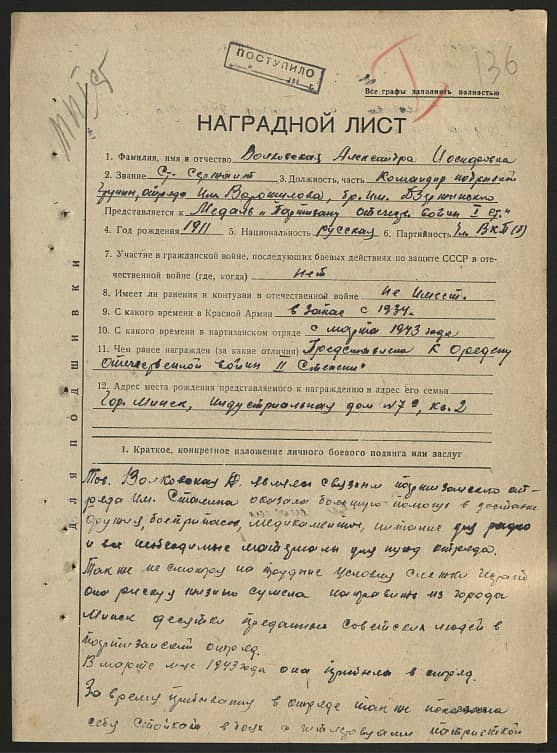 ПОСТУПИЛО
I
136
Все графы заполнять полностью
НАГРАДНОЙ ЛИСТ
1. Фамилия, имя и отчество Волковская Александра Иосифовна
2. Звание Ст. сержант 3. Должность, часть Командир
группы, отряда Им. Ворошилова, бр. Им. Дзержинского
Представляется к Медаль „Партизану отечеств войны I ст."
4. Год рождения 1911 5. Национальность русская 6. Партийность Чл ВКП(б)
7. Участие в гражданской войне, последующих боевых действиях по защите СССР в оте-
чественной войне (где, когда) нет
8. Имеет ли ранения и контузии в отечественной войне не имеет.
9. С какого времени в Красной Армии в запас с 1934г.
10. С какого времени в партизанском отряде с марта 1943 года
11. Чем ранее награжден (за какие отличия) Представлена к Ордену
Отечественной войны II Степени"
12. Адрес места рождения представляемого к награждению и адрес его семьи
Гор. Минск, Индустриальная дом № 79, кв. 2
1. Краткое, конкретное изложение личного боевого подвига или заслуг
Тов. Волковская А. являясь связным партизанского от-
ряда Им. Сталина оказала большую помощь в доставке
оружия, боеприпасов, медикаментов, питание для радио
и все необходимые материалы для нужд отряда.
Так же не смотря на трудные условия слежки
она рискуя жизнью сумела направить из города
Минск десятки преданных советских людей в
партизанский отряд.
В марте м-це 1943 года она прибыла в отряд.
За время пребывания в отряде так же показала
себя стойкой в боях с патриоткой
ДЛЯ ПОДШИВКИ